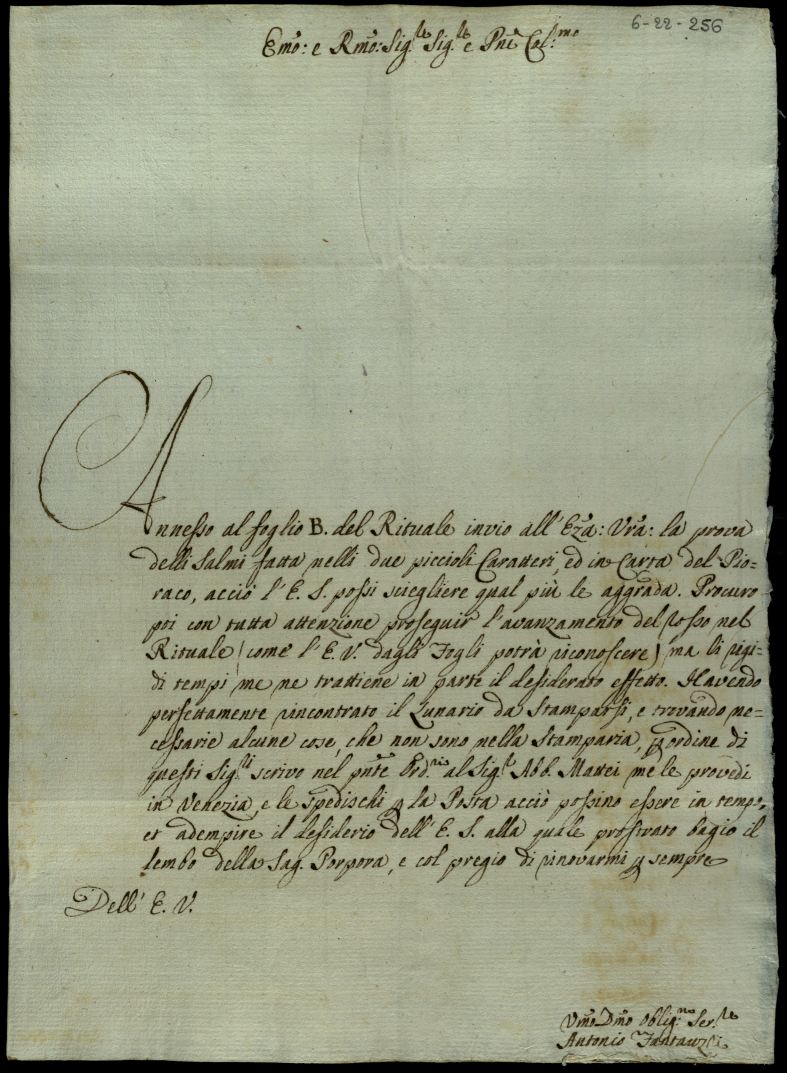 6-22-256
Emo: e Rmo: Sig.re Sig.re e Pne Col.mo
Annesso al foglio B. del Rituale invio all' Eza: Vra: la prova
delli Salmi fatta nelli due piccioli Caratteri, ed in Carta del Pio=
raco, acciò l'E. S. possi sciegliere qual più le aggrada. Procuro
poi con tutta attenzione proseguir l'avanzamento del rosso nel
Rituale (come l'E. V. dagli Fogli potrà riconoscere) ma li rigi=
di tempi me ne trattiene in parte il desiderato effetto. Havendo
perfettamente rincontrato il Lunario da Stamparsi, e trovando ne=
cessarie alcune cose, che non sono nella Stamparia, p ordine di
questi Sig.ri scrivo nel pnte Ord.rio al Sig.r Abb. Mattei me le provedi
in Venezia, e le spedischi p la Posta acciò possino essere in tempo,
et adempire il desiderio dell' E. S. alla quale prostrato bagio il
lembo della Sag. Porpora, e col pregio di rinovarmi p sempre
Dell' E. V.
Vmo Dmo Oblig.mo Ser.re
Antonio Fantauzzi